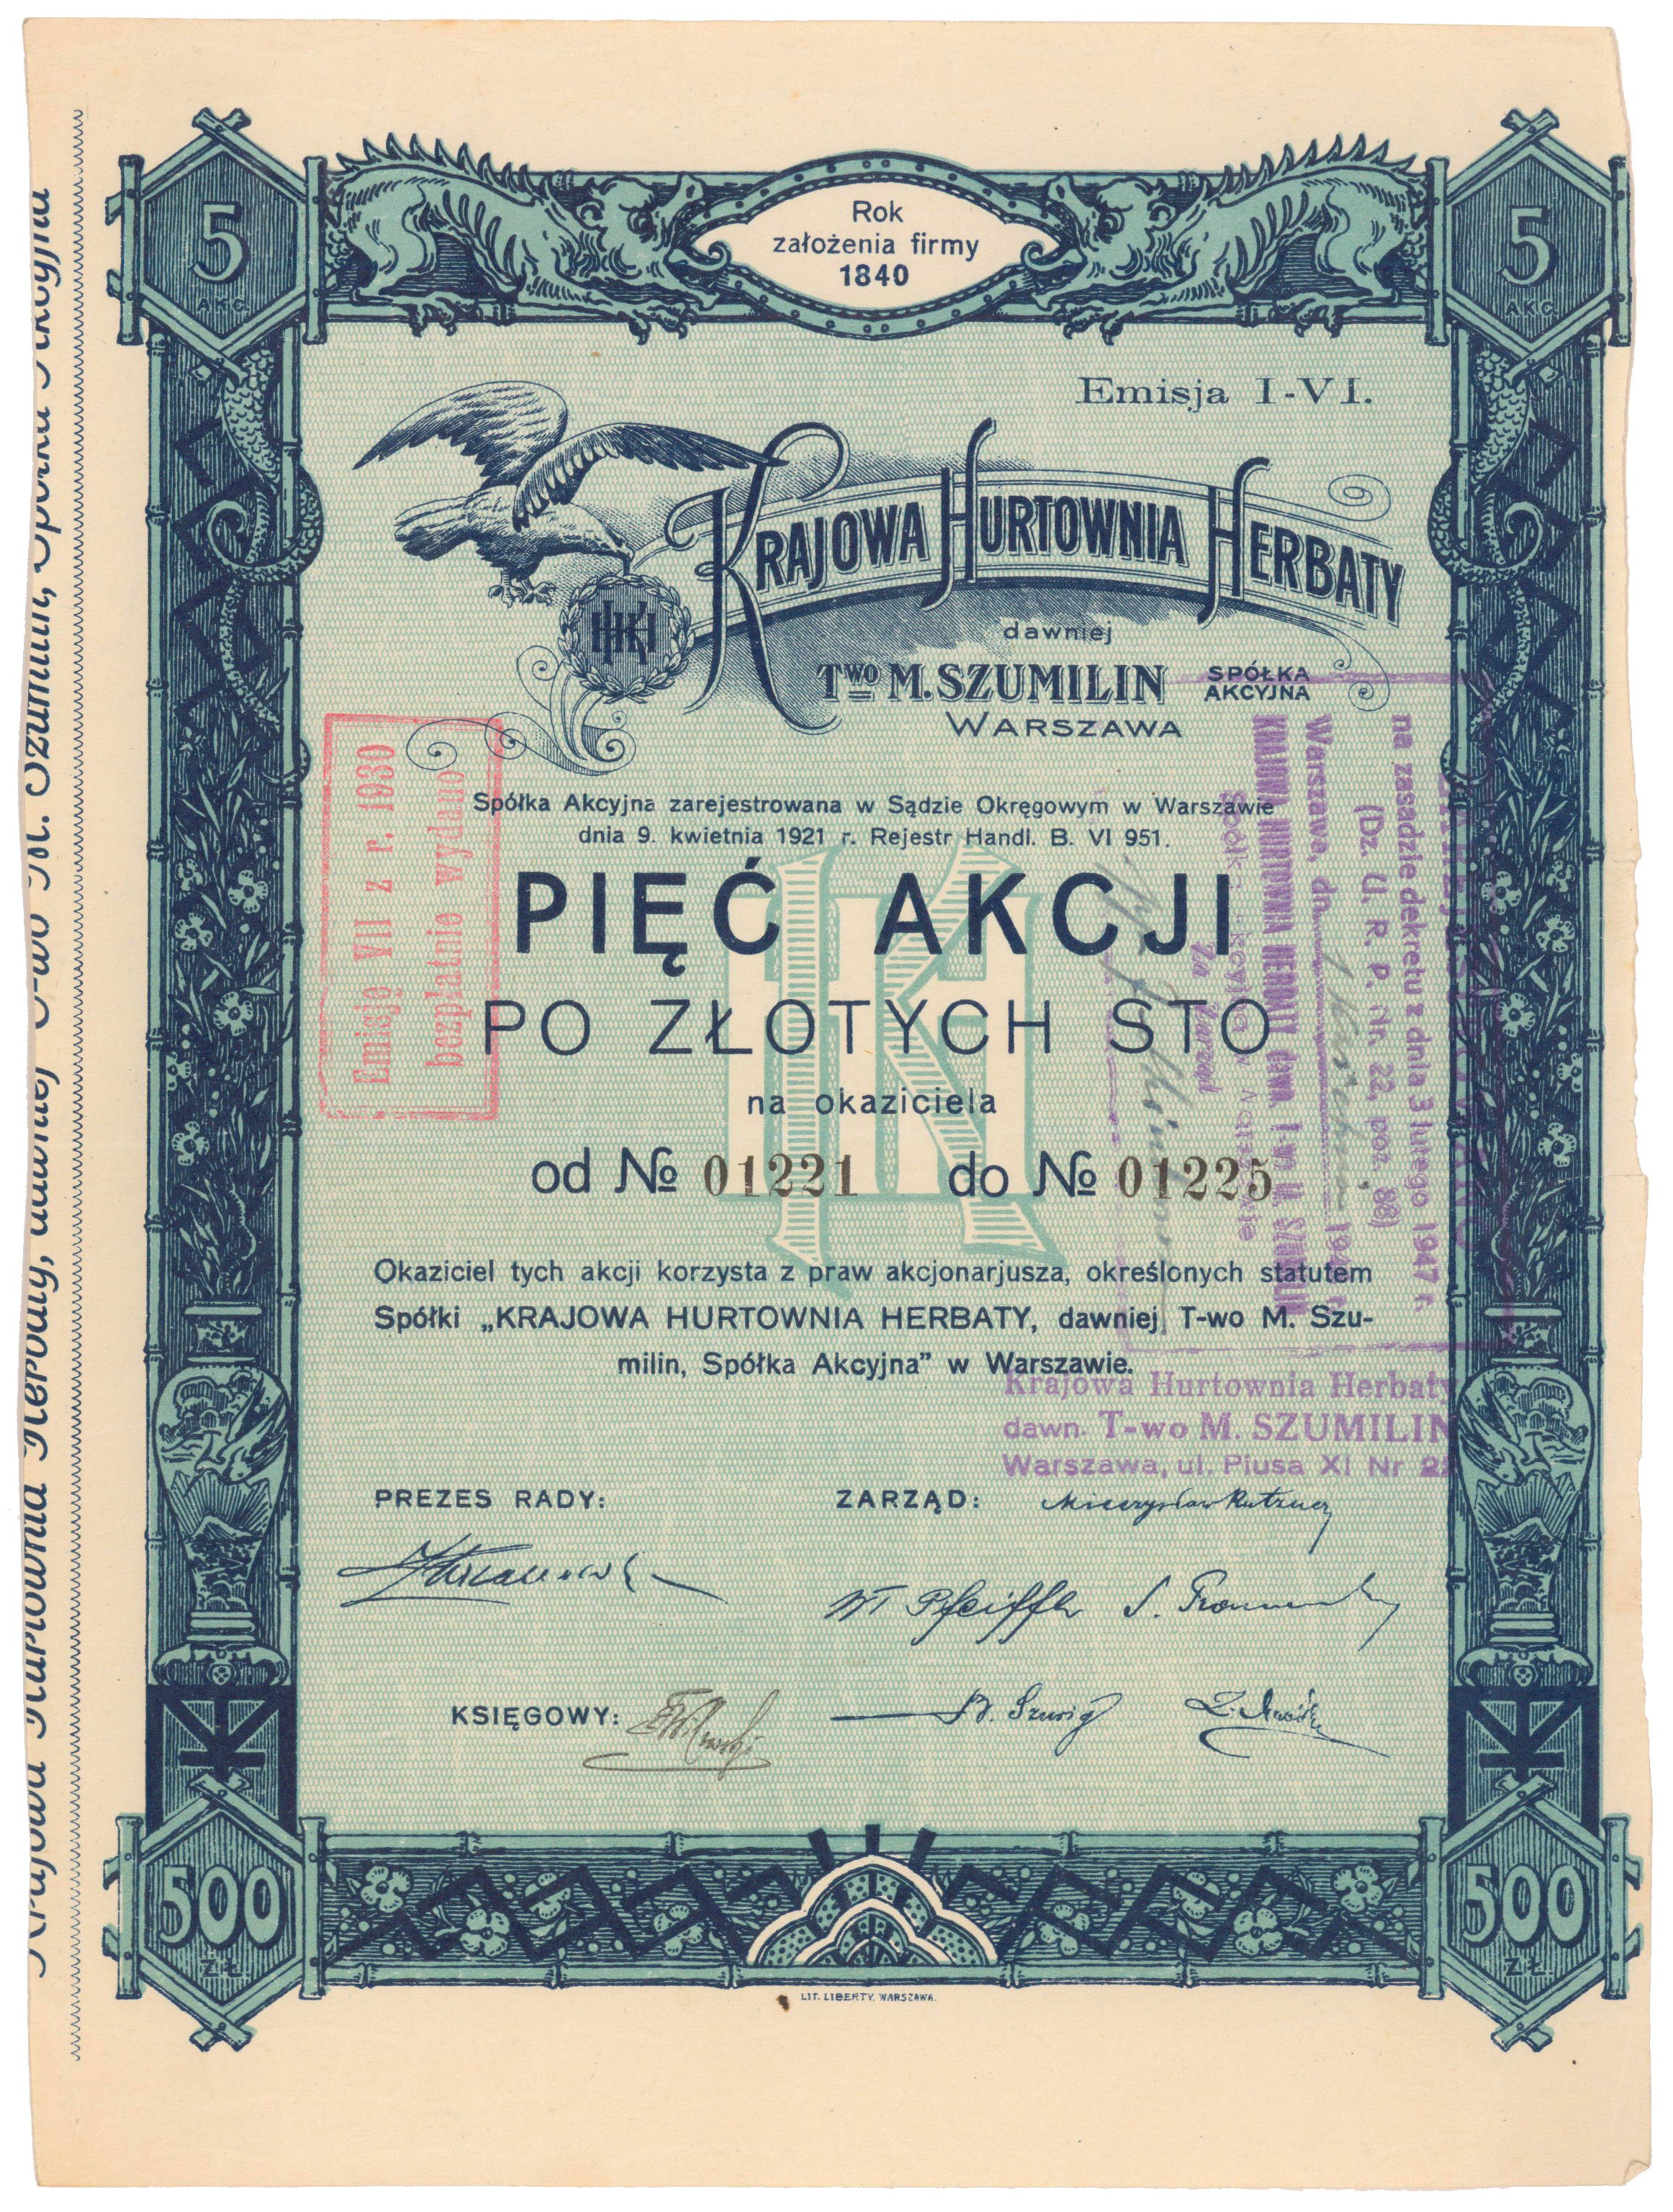 5
AKC.
Rok
założenia firmy
1840
5
AKC.
Emisja I-VI.
KRAJOWA HURTOWNIA HERBATY
HKH
dawniej
TWO M. SZUMILIN SPÓŁKA AKCYJNA
WARSZAWA
Spółka Akcyjna zarejestrowana w Sądzie Okręgowym w Warszawie
dnia 9. kwietnia 1921 r. Rejestr Handl. B. VI 951.
PIĘĆ AKCJI
PO ZŁOTYCH STO
na okaziciela
od № 01221 do № 01225
Okaziciel tych akcji korzysta z praw akcjonarjusza, określonych statutem
Spółki „KRAJOWA HURTOWNIA HERBATY, dawniej T-wo M. Szu-
milin, Spółka Akcyjna” w Warszawie.
Krajowa Hurtownia Herbaty
dawn. T-wo M. SZUMILIN
Warszawa, ul. Piusa XI Nr
PREZES RADY:
ZARZĄD:
W Pfeiffer
KSIĘGOWY:
500
ZŁ.
500
ZŁ.
LIT. LIBERTY, WARSZAWA.
Emisję VII z r. 1930
bezpłatnie wydano
ZAREJESTROWANO
na zasadzie dekretu z dnia 3 lutego 1947 r.
(Dz. U. R. P. Nr. 22, poz. 88)
Warszawa, dn. 1 194 r.
KRAJOWA HURTOWNIA HERBATY dawn. T-wo M. SZUMILIN
Spółka Akcyjna w Warszawie
Za Zarząd
Krajowa Hurtownia Herbaty, dawniej T-wo M. Szumilin, Spółka Akcyjna